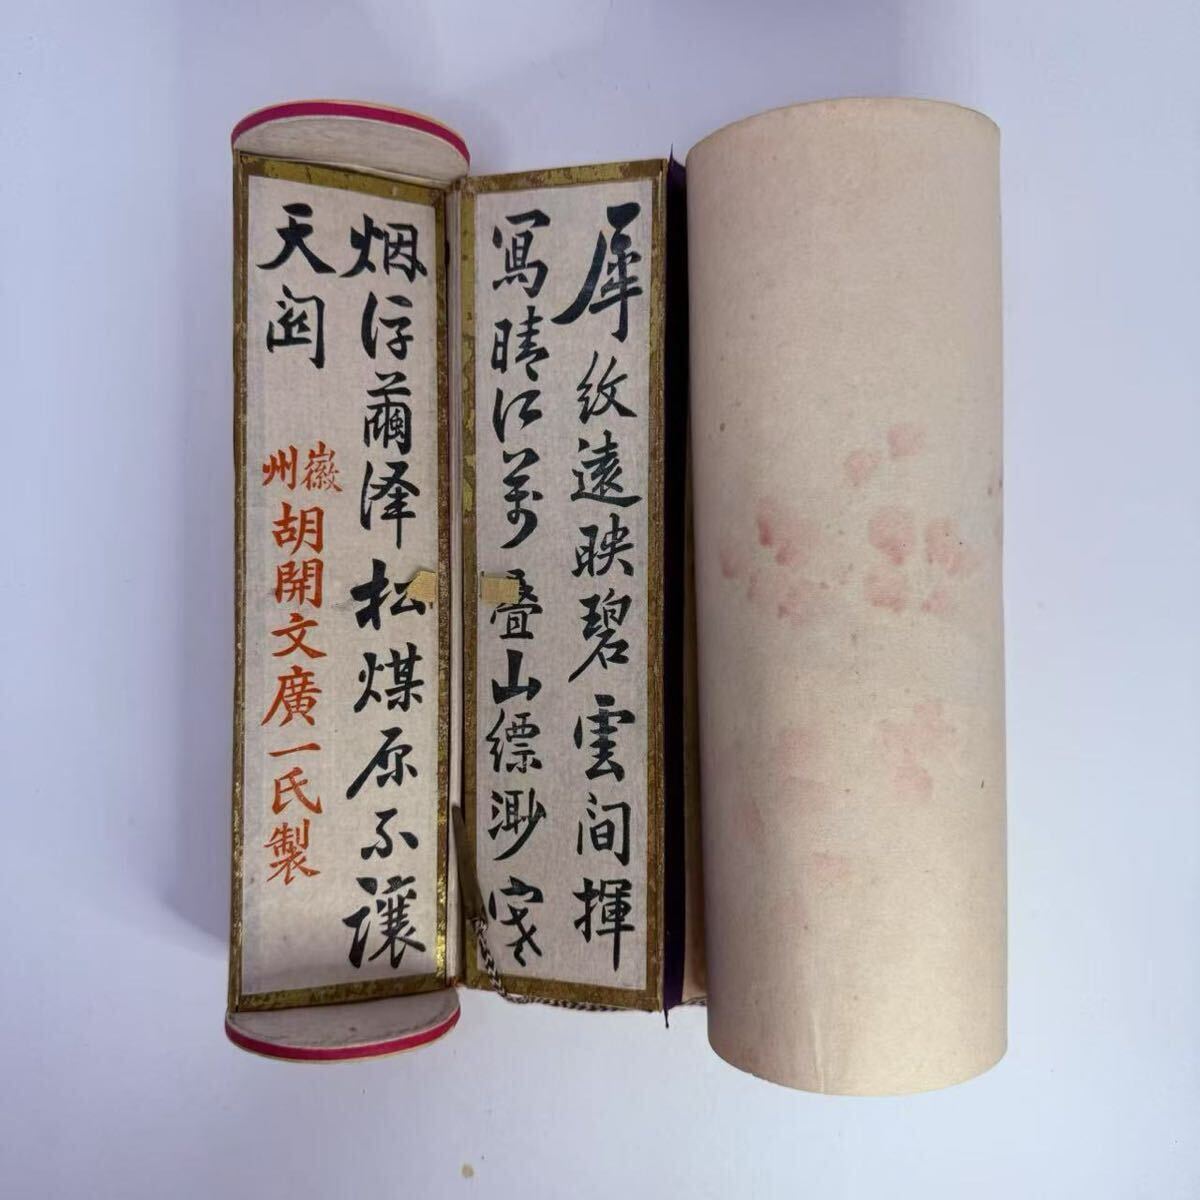 犀紋遠映碧雲間揮
寫晴江萬叠山縹渺寒
烟浮茧泽松煤原不讓
天閎
徽州
胡開文廣一氏製